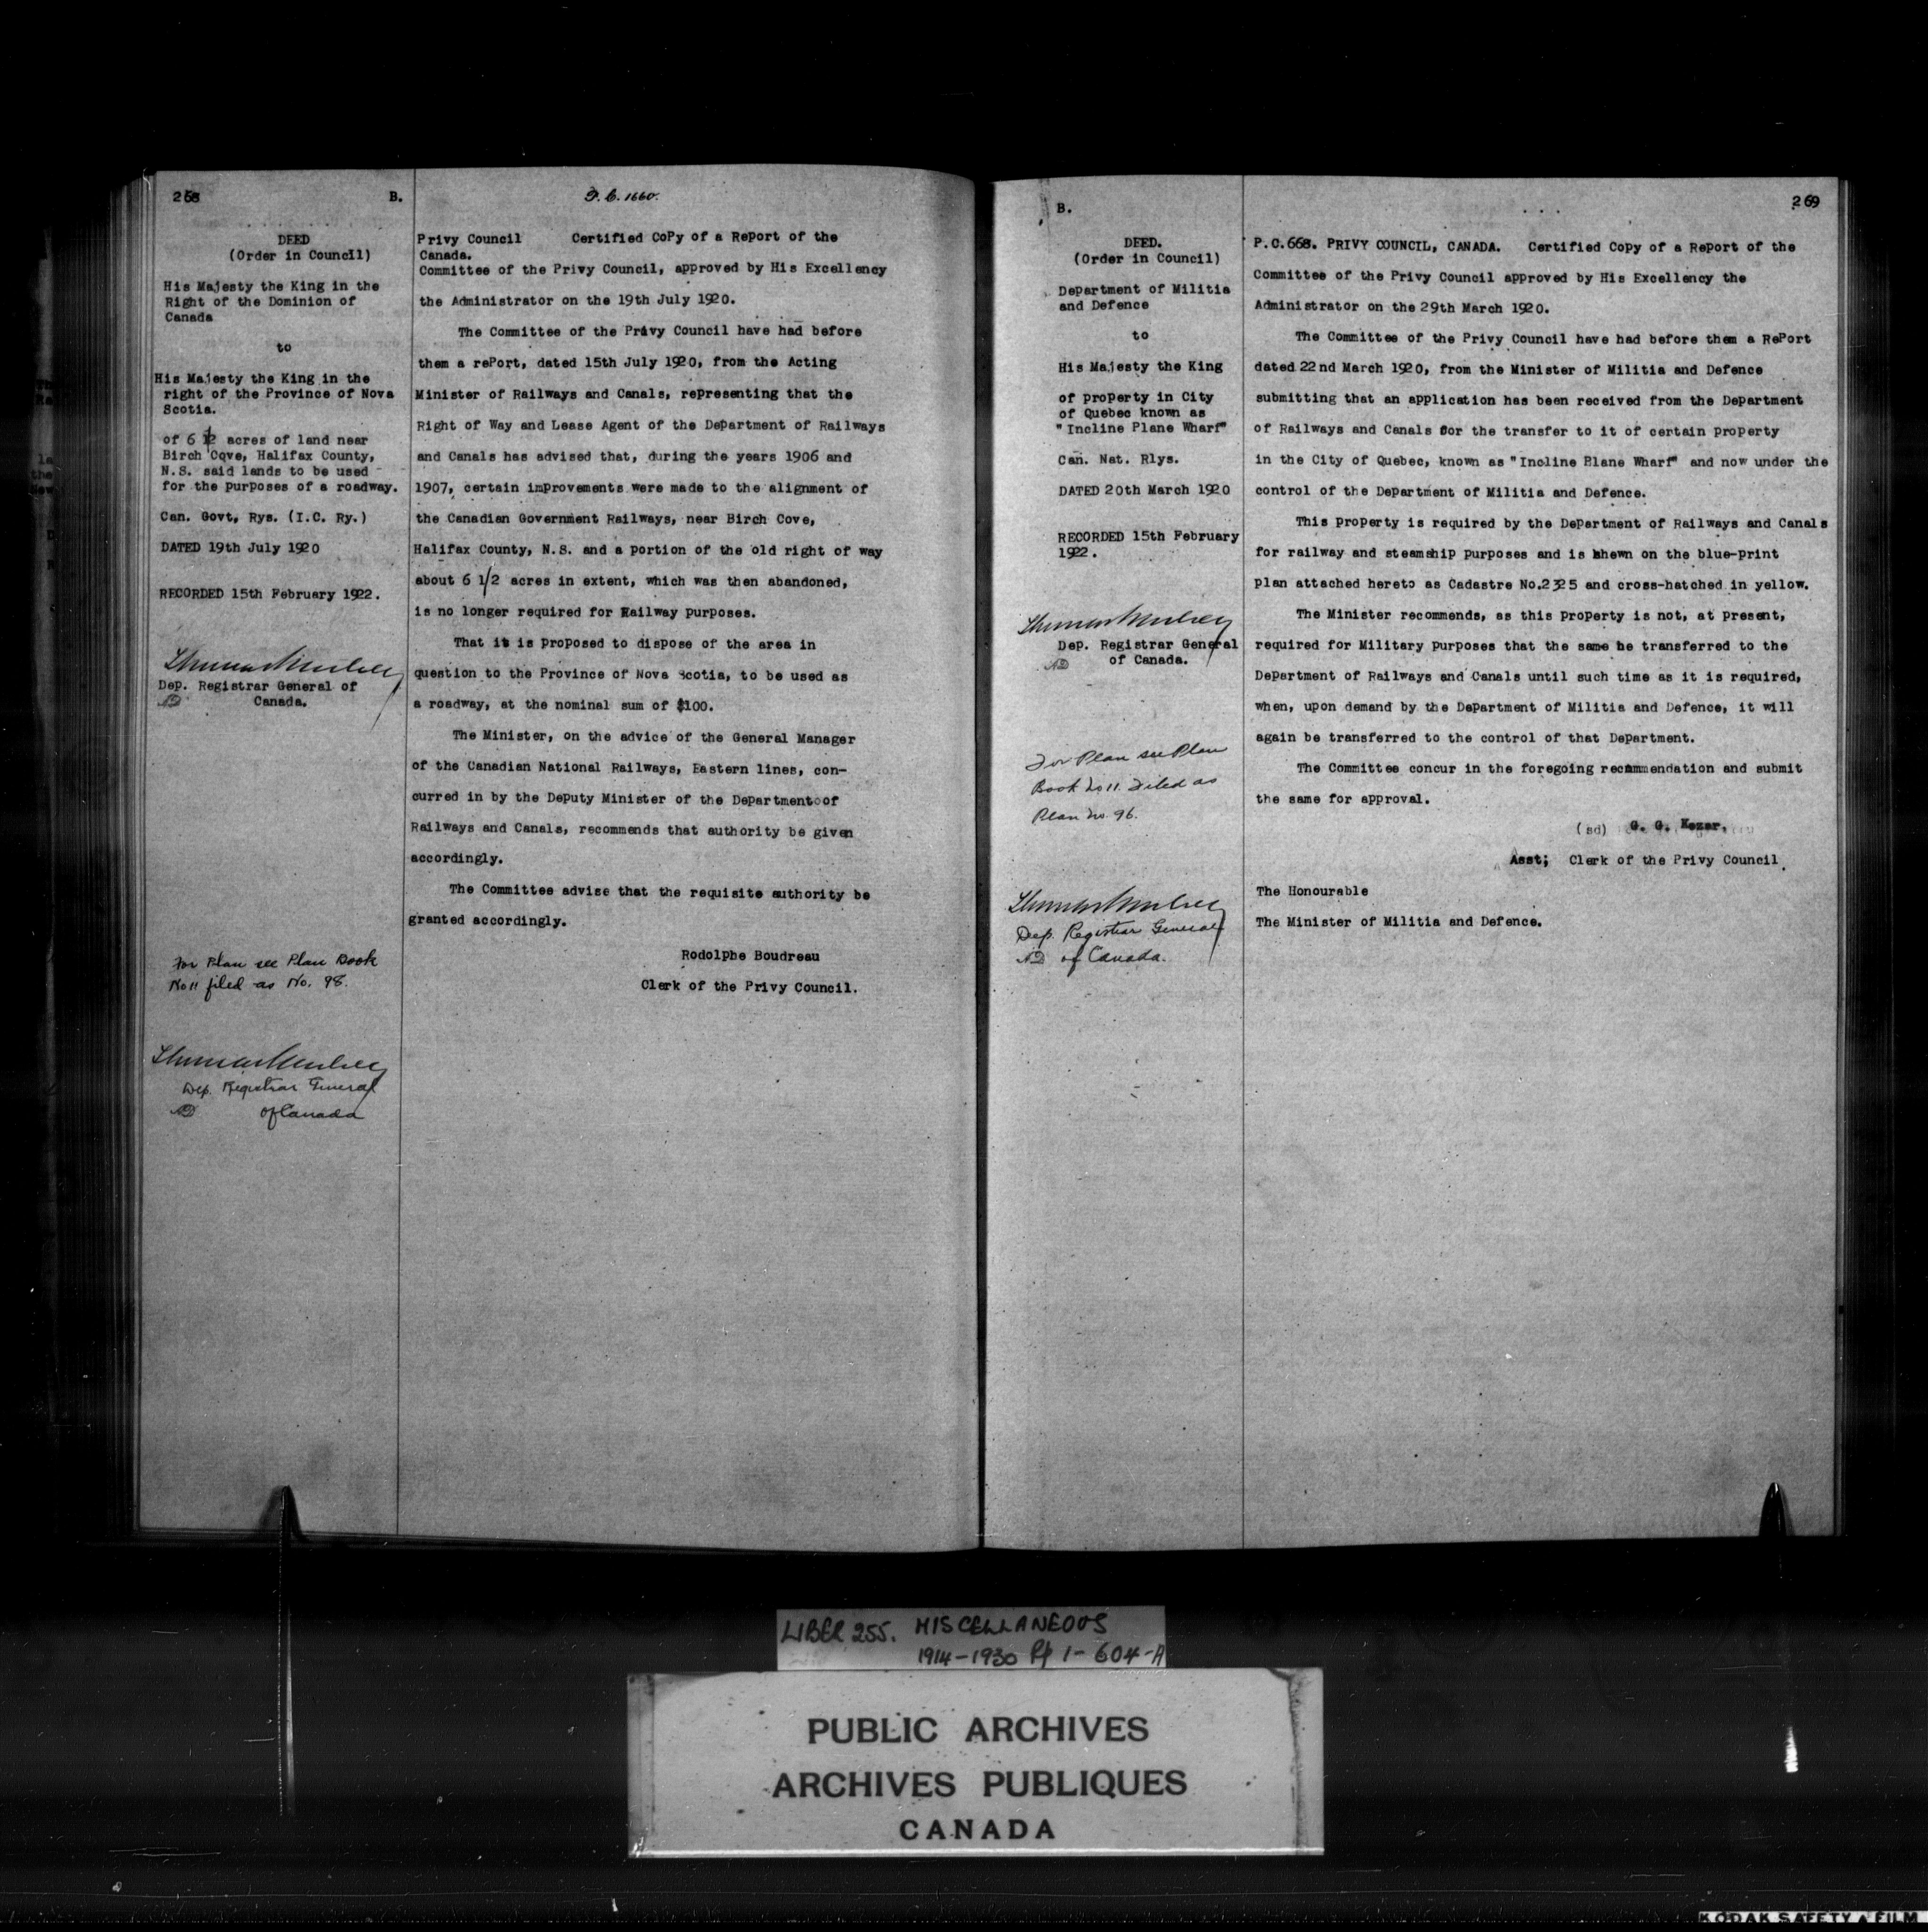 268 B.
DEED
(Order in Council)
His Majesty the King in the
Right of the Dominion of
Canada
to
His Majesty the King in the
right of the Province of Nova
Scotia.
of 6 1/2 acres of land near
Birch Cove, Halifax County,
N.S. said lands to be used
for the purposes of a roadway.
Can. Govt, Rys. (I.C. Ry.)
DATED 19th July 1920
RECORDED 15th February 1922.
Thomas Mulvey
Dep. Registrar General of
Canada.
For Plan see Plan Book
No 11 filed as No. 98.
Thomas Mulvey
Dep. Registrar General
of Canada
P.C. 1660.
Privy Council Certified CoPy of a RePort of the
Canada.
Committee of the Privy Council, approved by His Excellency
the Administrator on the 19th July 1920.
The Committee of the Privy Council have had before
them a rePort, dated 15th July 1920, from the Acting
Minister of Railways and Canals, rePresenting that the
Right of Way and Lease Agent of the DePartment of Railways
and Canals has advised that, during the years 1906 and
1907, certain imProvements were made to the alignment of
the Canadian Government Railways, near Birch Cove,
Halifax County, N.S. and a Portion of the old right of way
about 6 1/2 acres in extent, which was then abandoned,
is no longer required for Railway PurPoses.
That it is ProPosed to disPose of the area in
question to the Province of Nova Scotia, to be used as
a roadway, at the nominal sum of $100.
The Minister, on the advice of the General Manager
of the Canadian National Railways, Eastern lines, con-
curred in by the DePuty Minister of the Department of
Railways and Canals, recommends that authority be given
accordingly.
The Committee advise that the requisite authority be
granted accordingly.
RodolPhe Boudreau
Clerk of the Privy Council.
B. 269
DEED.
(Order in Council)
DePartment of Militia
and Defence
to
His Majesty the King
of ProPerty in City
of Quebec known as
"Incline Plane Wharf"
Can. Nat. Rlys.
DATED 20th March 1920
RECORDED 15th February
1922.
Thomas Mulvey
Dep. Registrar General
of Canada.
For Plan see Plan
Book No 11. Filed as
Plan No. 96.
Thomas Mulvey
Dep. Registrar General
of Canada.
P.C.668. PRIVY COUNCIL, CANADA. Certified CoPy of a RePort of the
Committee of the Privy Council aPProved by His Excellency the
Administrator on the 29th March 1920.
The Committee of the Privy Council have had before them a RePort
dated 22nd March 1920, from the Minister of Militia and Defence
submitting that an aPPlication has been received from the DePartment
of Railways and Canals for the transfer to it of certain ProPerty
in the City of Quebec, known as "Incline Plane Wharf" and now under the
control of the DePartment of Militia and Defence.
This ProPerty is required by the DePartment of Railways and Canals
for railway and steamship PurPoses and is shewn on the blue-Print
Plan attached hereto as Cadastre No.2325 and cross-hatched in yellow.
The Minister recommends, as this ProPerty is not, at Present,
required for Military PurPoses that the same be transferred to the
DePartment of Railways and Canals until such time as it is required,
when, uPon demand by the DePartment of Militia and Defence, it will
again be transferred to the control of that DePartment.
The Committee concur in the foregoing recommendation and submit
the same for aPProval.
(sd) G. G. Kezar,
Asst; Clerk of the Privy Council.
The Honourable
The Minister of Militia and Defence.
LIBER 255. MISCELLANEOUS
1914-1930 Pp 1-604-A
PUBLIC ARCHIVES
ARCHIVES PUBLIQUES
CANADA
KODAK SAFETY FILM